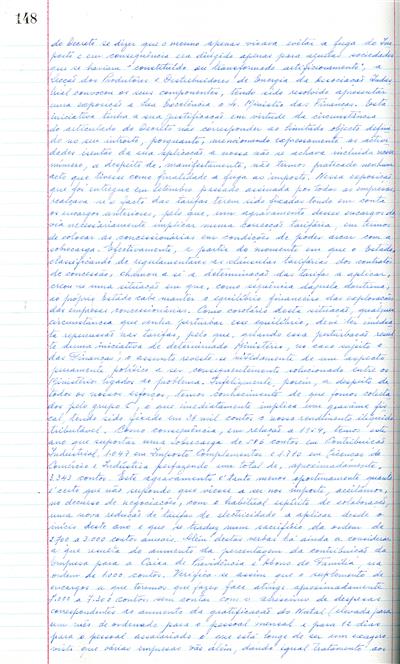 148
do Decreto se dizer que o mesmo apenas visava evitar a fuga do Im-
posto e em consequência era dirigido apenas para aquelas sociedades
que se haviam "constituído ou transformado artificiosamente", a
Secção dos Produtores e Distribuidores de Energia da Associação Indus-
trial convocou os seus componentes, tendo sido resolvido apresentar
uma exposição a Sua Excelência o Sr. Ministro das Finanças. Esta
iniciativa tinha a sua justificação em virtude da circunstância
do articulado do Decreto não corresponder ao limitado objecto defini-
do no seu intuito, porquanto, mencionando expressamente as activi-
dades isentas da sua aplicação a nossa não se achava incluída nesse
número, a despeito de, manifestamente, não termos praticado nenhum
acto que tivesse como finalidade a fuga ao imposto. Nessa exposição
que foi entregue em Setembro passado assinada por todas as empresas,
realçava-se o facto das tarifas terem sido fixadas tendo em conta
os encargos anteriores, pelo que, um agravamento desses encargos de-
via necessariamente implicar numa correcção tarifária, em termos
de colocar as concessionárias em condições de poder arcar com a
sobrecarga. Efectivamente, a partir do momento em que o Estado,
classificando de regulamentares as cláusulas tarifárias dos contratos
de concessão, chamou a si a determinação das tarifas a aplicar,
criou-se uma situação em que, como sequência daquela doutrina,
ao próprio Estado cabe manter o equilíbrio financeiro das explorações
das empresas concessionárias. Como corolário desta situação, qualquer
circunstância que venha perturbar esse equilíbrio, deve ter imedia-
ta repercussão nas tarifas, pelo que, quando essa perturbação resul-
te duma iniciativa de determinado Ministério, no caso sujeito o
das Finanças, o assunto reveste-se nitidamente de um aspecto
puramente político a ser consequentemente solucionado entre os
Ministérios ligados ao problema. Infelizmente, porém, a despeito de
todos os nossos esforços, temos conhecimento de que fomos colecta-
dos pelo grupo C, o que imediatamente implica um gravame fis-
cal tendo sido fixado em contos o nosso rendimento
tributável. Como consequência, em relação a 1964, temos este
ano que suportar uma sobrecarga de 506 contos em Contribuição
Industrial, 1.047 em Imposto Complementar e 1.790 em Licenças de
Comércio e Indústria perfazendo um total de, aproximadamente,
3.343 contos. Este agravamento é tanto menos oportuno quanto
é certo que não supondo que viesse a ser-nos imposto, aceitámos,
no decurso de negociações, com o habitual espírito de colaboração,
uma nova redução de tarifas de electricidade a aplicar desde o
início deste ano e que se traduz num sacrifício da ordem de
2.700 a 3.000 contos anuais. Além destas verbas há ainda a considerar
a que resulta do aumento da percentagem da contribuição da
Empresa para a Caixa de Previdência e Abono de Família, na
ordem de 1.000 contos. Verifica-se assim que o suplemento de
encargos a que teremos que fazer face atinge aproximadamente
7.000 a 7.300 contos sem contar com o acréscimo de despesas
correspondentes ao aumento da gratificação do Natal (elevada para
um mês de ordenado para o pessoal mensal e para 12 dias
para o pessoal assalariado e que está longe de ser um exagero
visto que várias empresas vão além, dando igual tratamento aos